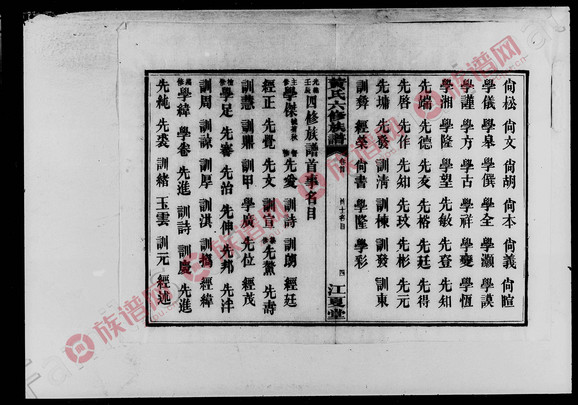 尚松 尚文 尚胡 尚本 尚義 尚暄
學儀 學泉 學僎 學全 學灝 學謨
學謹 學方 學古 學祥 學夔 學恆
學湘 學隆 學望 先敏 先登 先知
先端 先德 先友 先裕 先廷 先得
先啓 先作 先知 先玖 先彬 先元
先墉 先發 訓清 訓棟 訓發 訓東
訓舜 經榮 尚書 學隆 學彩
黃氏六修族譜 卷首 四 江夏堂
光緒壬辰四修族譜首事名目
主修學傑 先愛 訓詩 訓朝 經廷
經正 先覺 先文 訓宣 先薰 先壽
訓慧 訓肅 訓甲 學廣 先位 經茂
學足 先審 先治 先伸 先邦 先泮
訓周 訓諒 訓厚 訓淇 訓鵠 經緯
學緯 學春 先進 訓詩 訓廣 先進
先純 先裘 訓緒 玉雲 訓元 經述
族谱网